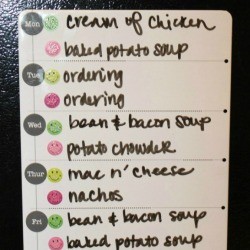 Mon cream of chicken
baked potato soup
Tue ordering
ordering
Wed bean & bacon soup
potato chowder
Thur mac n' cheese
nachos
Fri bean & bacon soup
baked potato soup